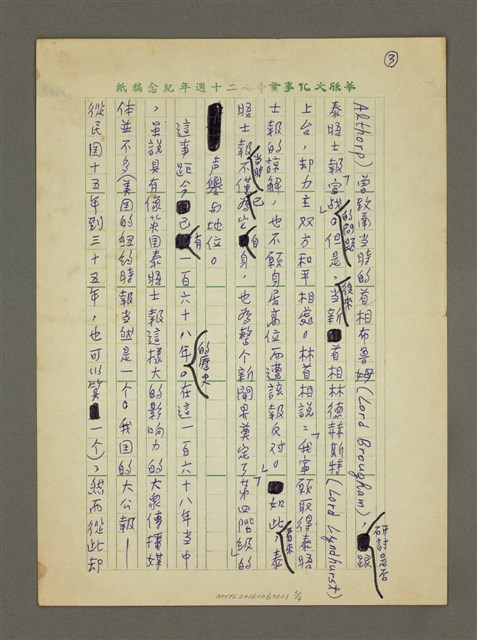 ③
華欣文化事業中心二十週年紀念稿紙
Althorp）曾致函當時的首相布魯姆（Lord Brougham），研討是否跟
泰晤士報宣戰」的問題。但是，後來當新首相林德赫斯特（Lord Lyndhurst）
上台，却力主双方和平相處。林首相說：「我寧願取得泰晤
士報的諒解，也不願身居高位而遭該報反对。」如此看來，泰
晤士報當時不僅已為它自身，也為整个新聞界奠定了「第四階級」的
声譽与地位。
這事距今已有一百六十八年的歷史。在這一百六十八年当中
，虽說具有像英国泰晤士報這樣大的影响力的大衆傳播媒
体並不多（美国的紐約時報当然是一个。我国的大公報—
從民国十五年到三十五年，也可以算一个），然而從此却
NMTL20160060303 3/9